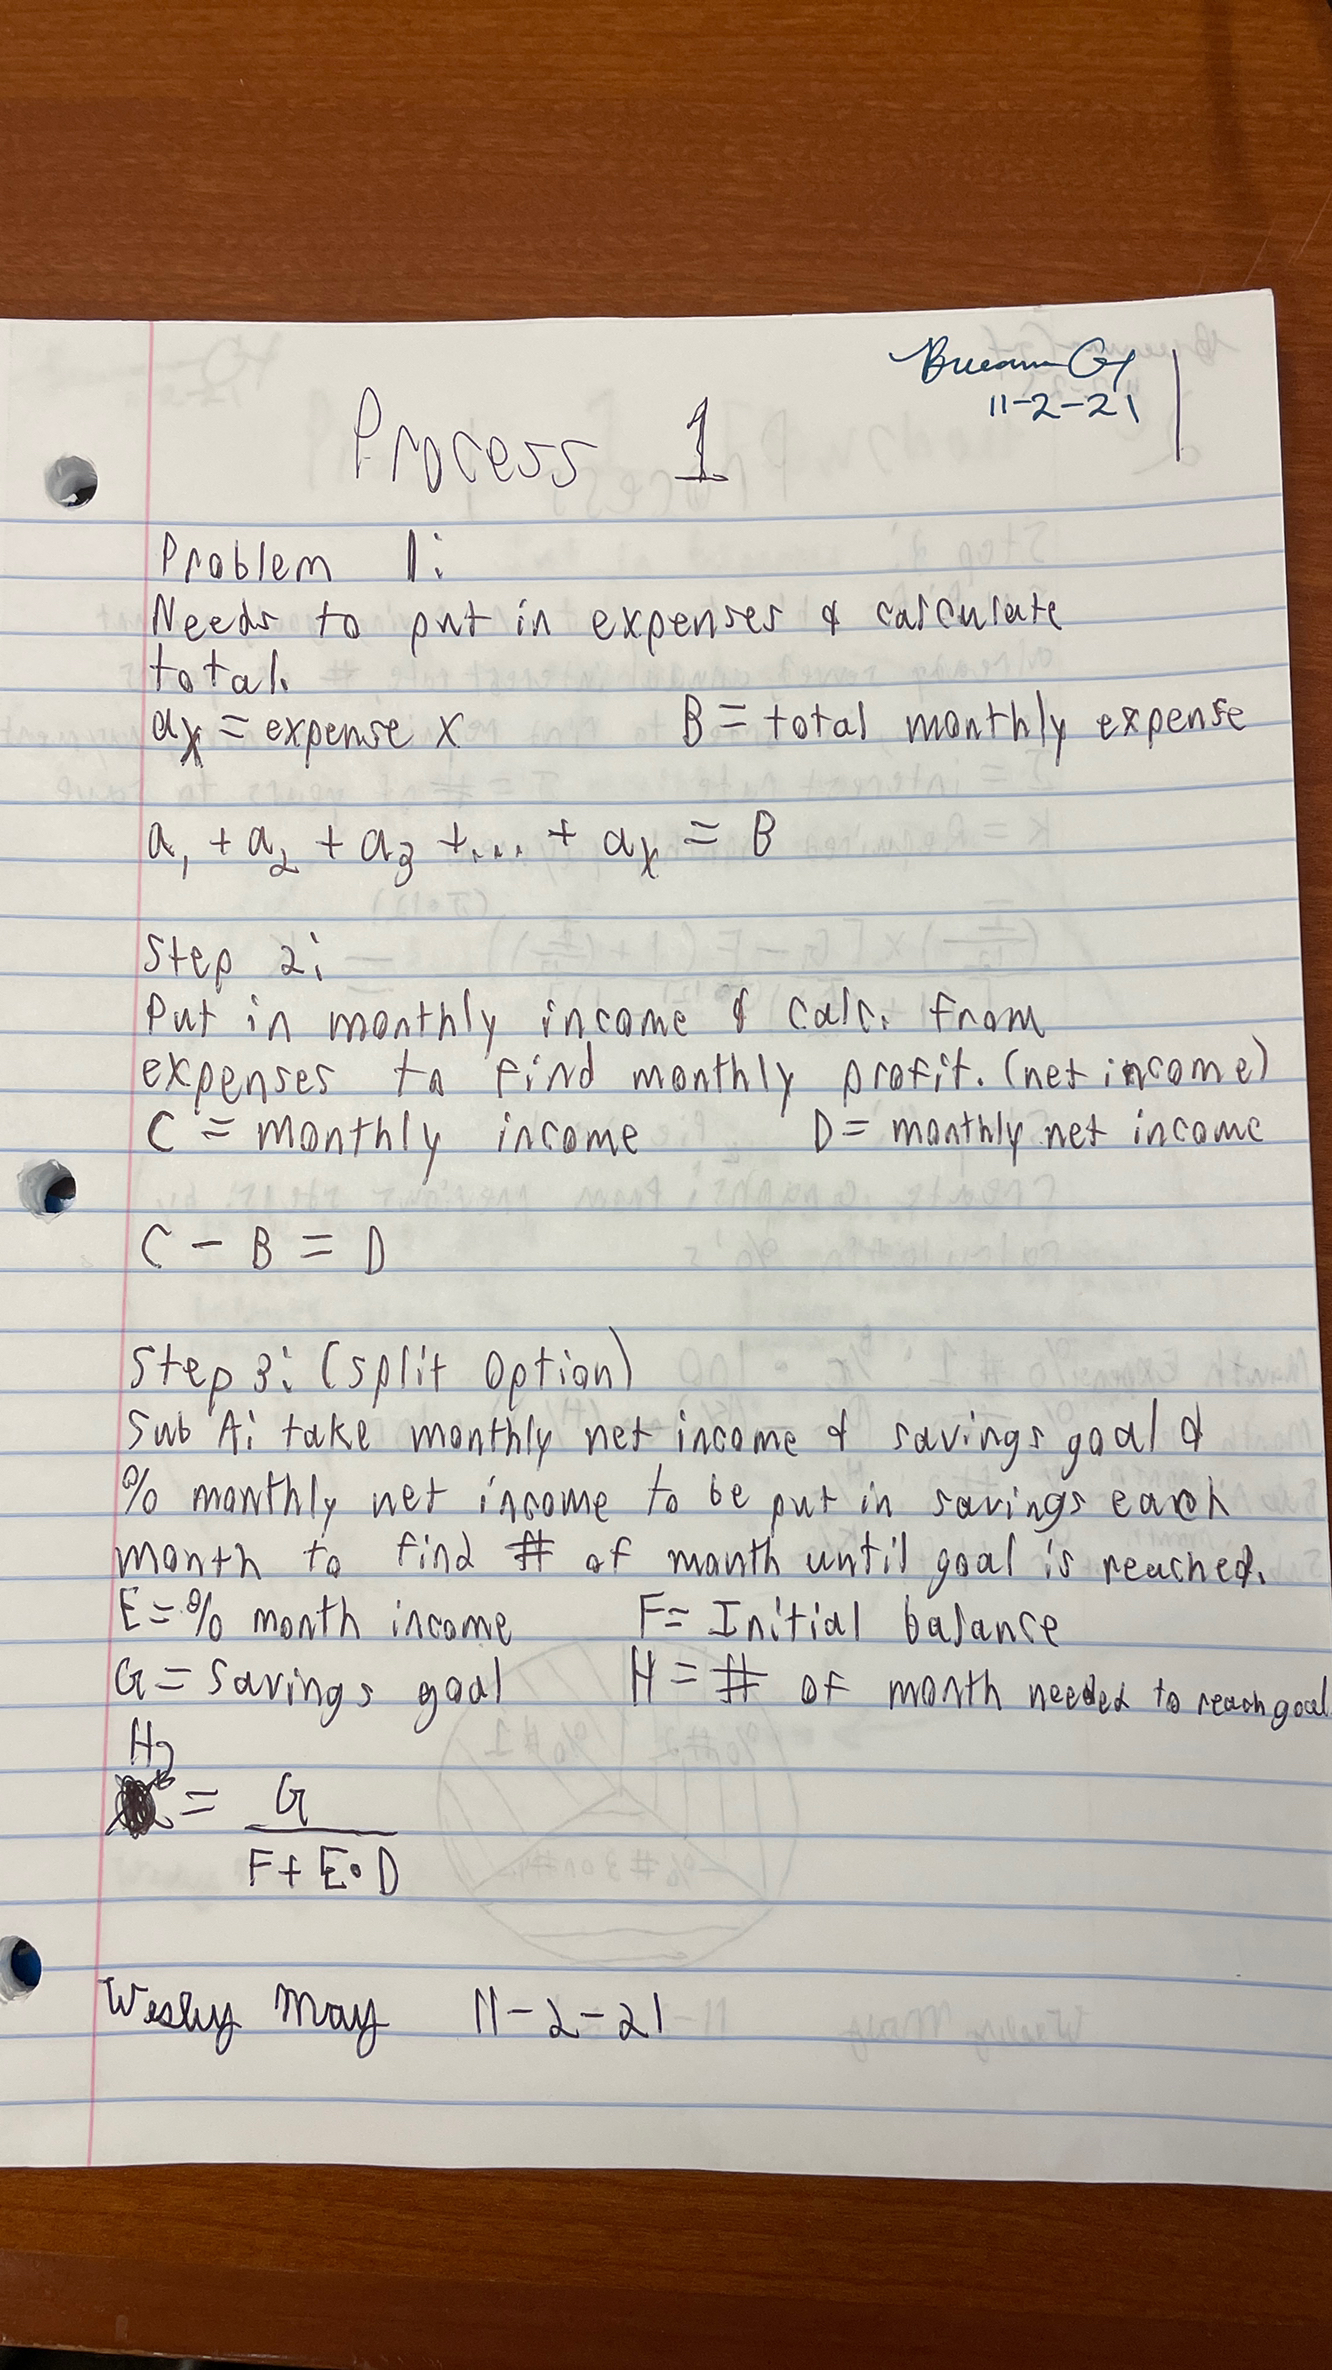 11-2-21
Process 1
Problem 1:
Needs to put in expenses & calculate
total.
aₓ = expense x B = total monthly expense
a₁ + a₂ + a₃ +... + aₓ = B
Step 2:
Put in monthly income & calc. from
expenses to find monthly profit. (net income)
C = monthly income D = monthly net income
C - B = D
Step 3: (Split Option)
Sub A: take monthly net income & savings goal &
% monthly net income to be put in savings each
month to find # of month until goal is reached.
E = % month income F = Initial balance
G = Savings goal H = # of month needed to reach goal
H
= G
F + E • D
Wesley May 11-2-21